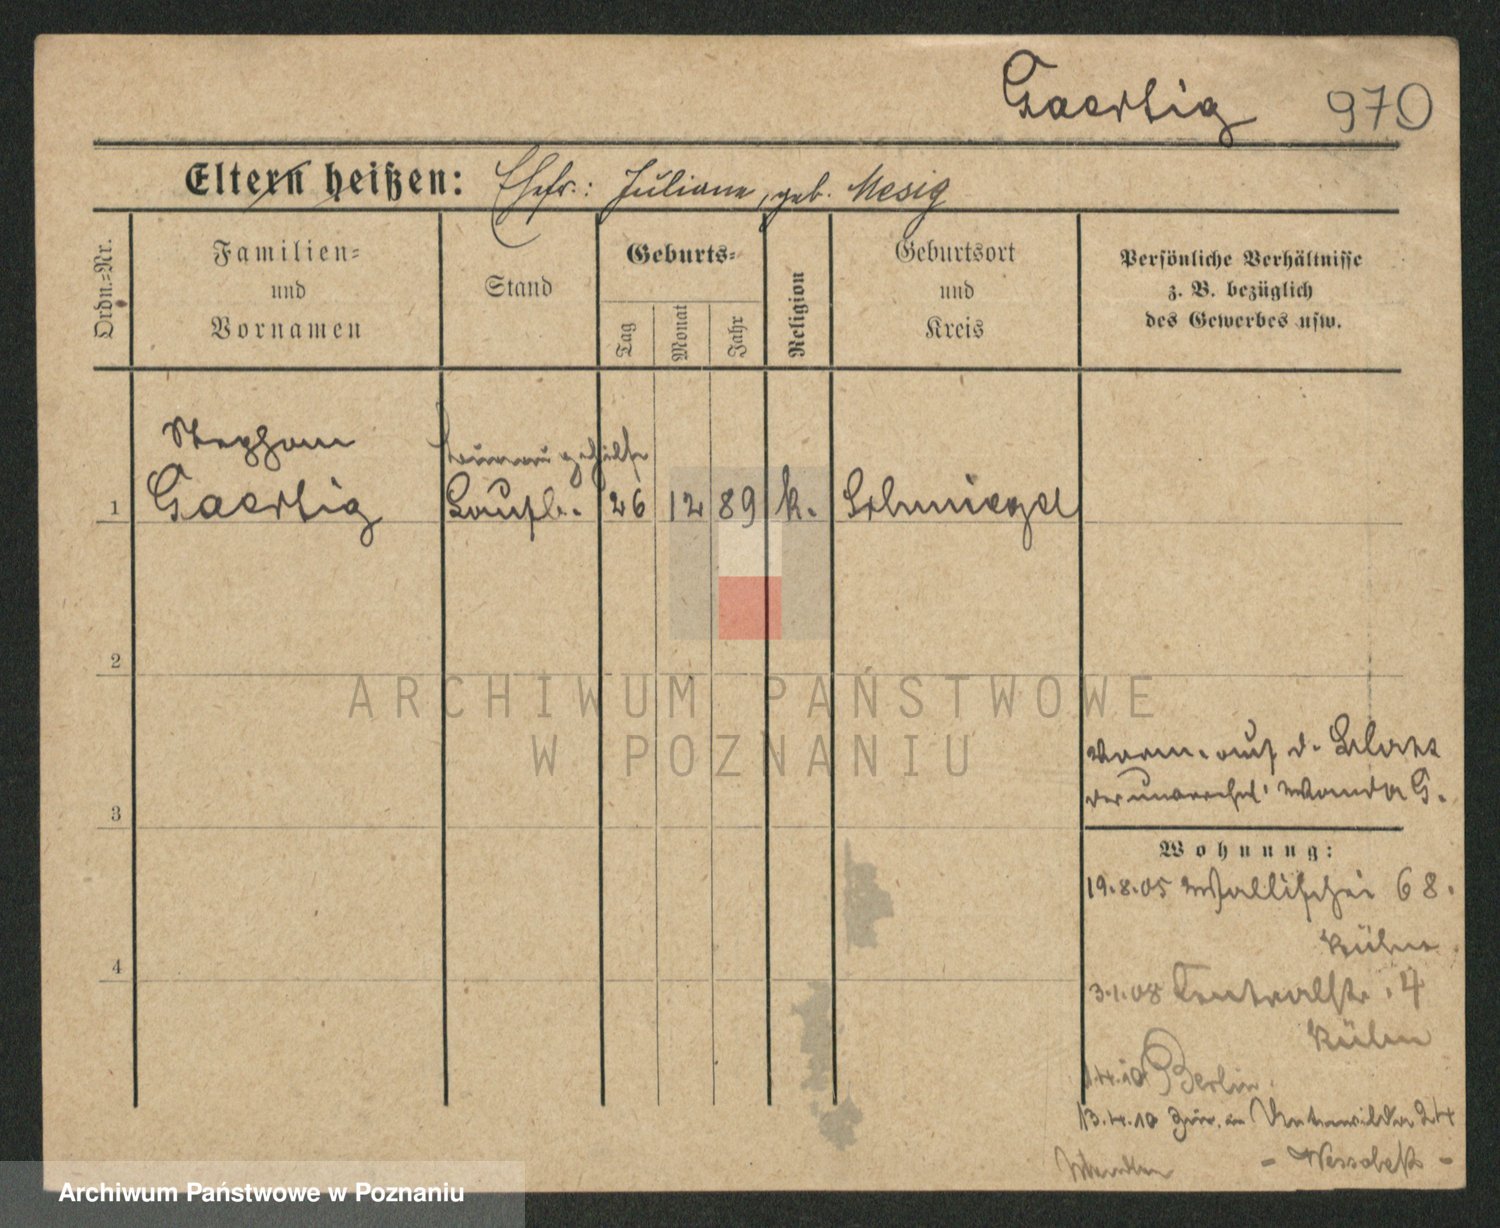 Gaertig 970
Eltern heißen: Ehefr.: Juliane, geb. Mesig
Ordn.=Nr.
Familien=
und
Vornamen
Stand
Geburts=
Tag
Monat
Jahr
Religion
Geburtsort
und
Kreis
Persönliche Verhältnisse
z. B. bezüglich
des Gewerbes usw.
Stephan
1 Gaertig Laufb. 26 12 89 k. Schmiegel
2
3
4
auf d.
der unverehel. Wanda G.
Wohnung:
19.8.05 Wallischei 68.
Kühn
3.1.08 Centralstr. 4
Kühn
1.4.10 Berlin
13.4.10 zur. 24
ARCHIWUM PAŃSTWOWE
W POZNANIU
Archiwum Państwowe w Poznaniu